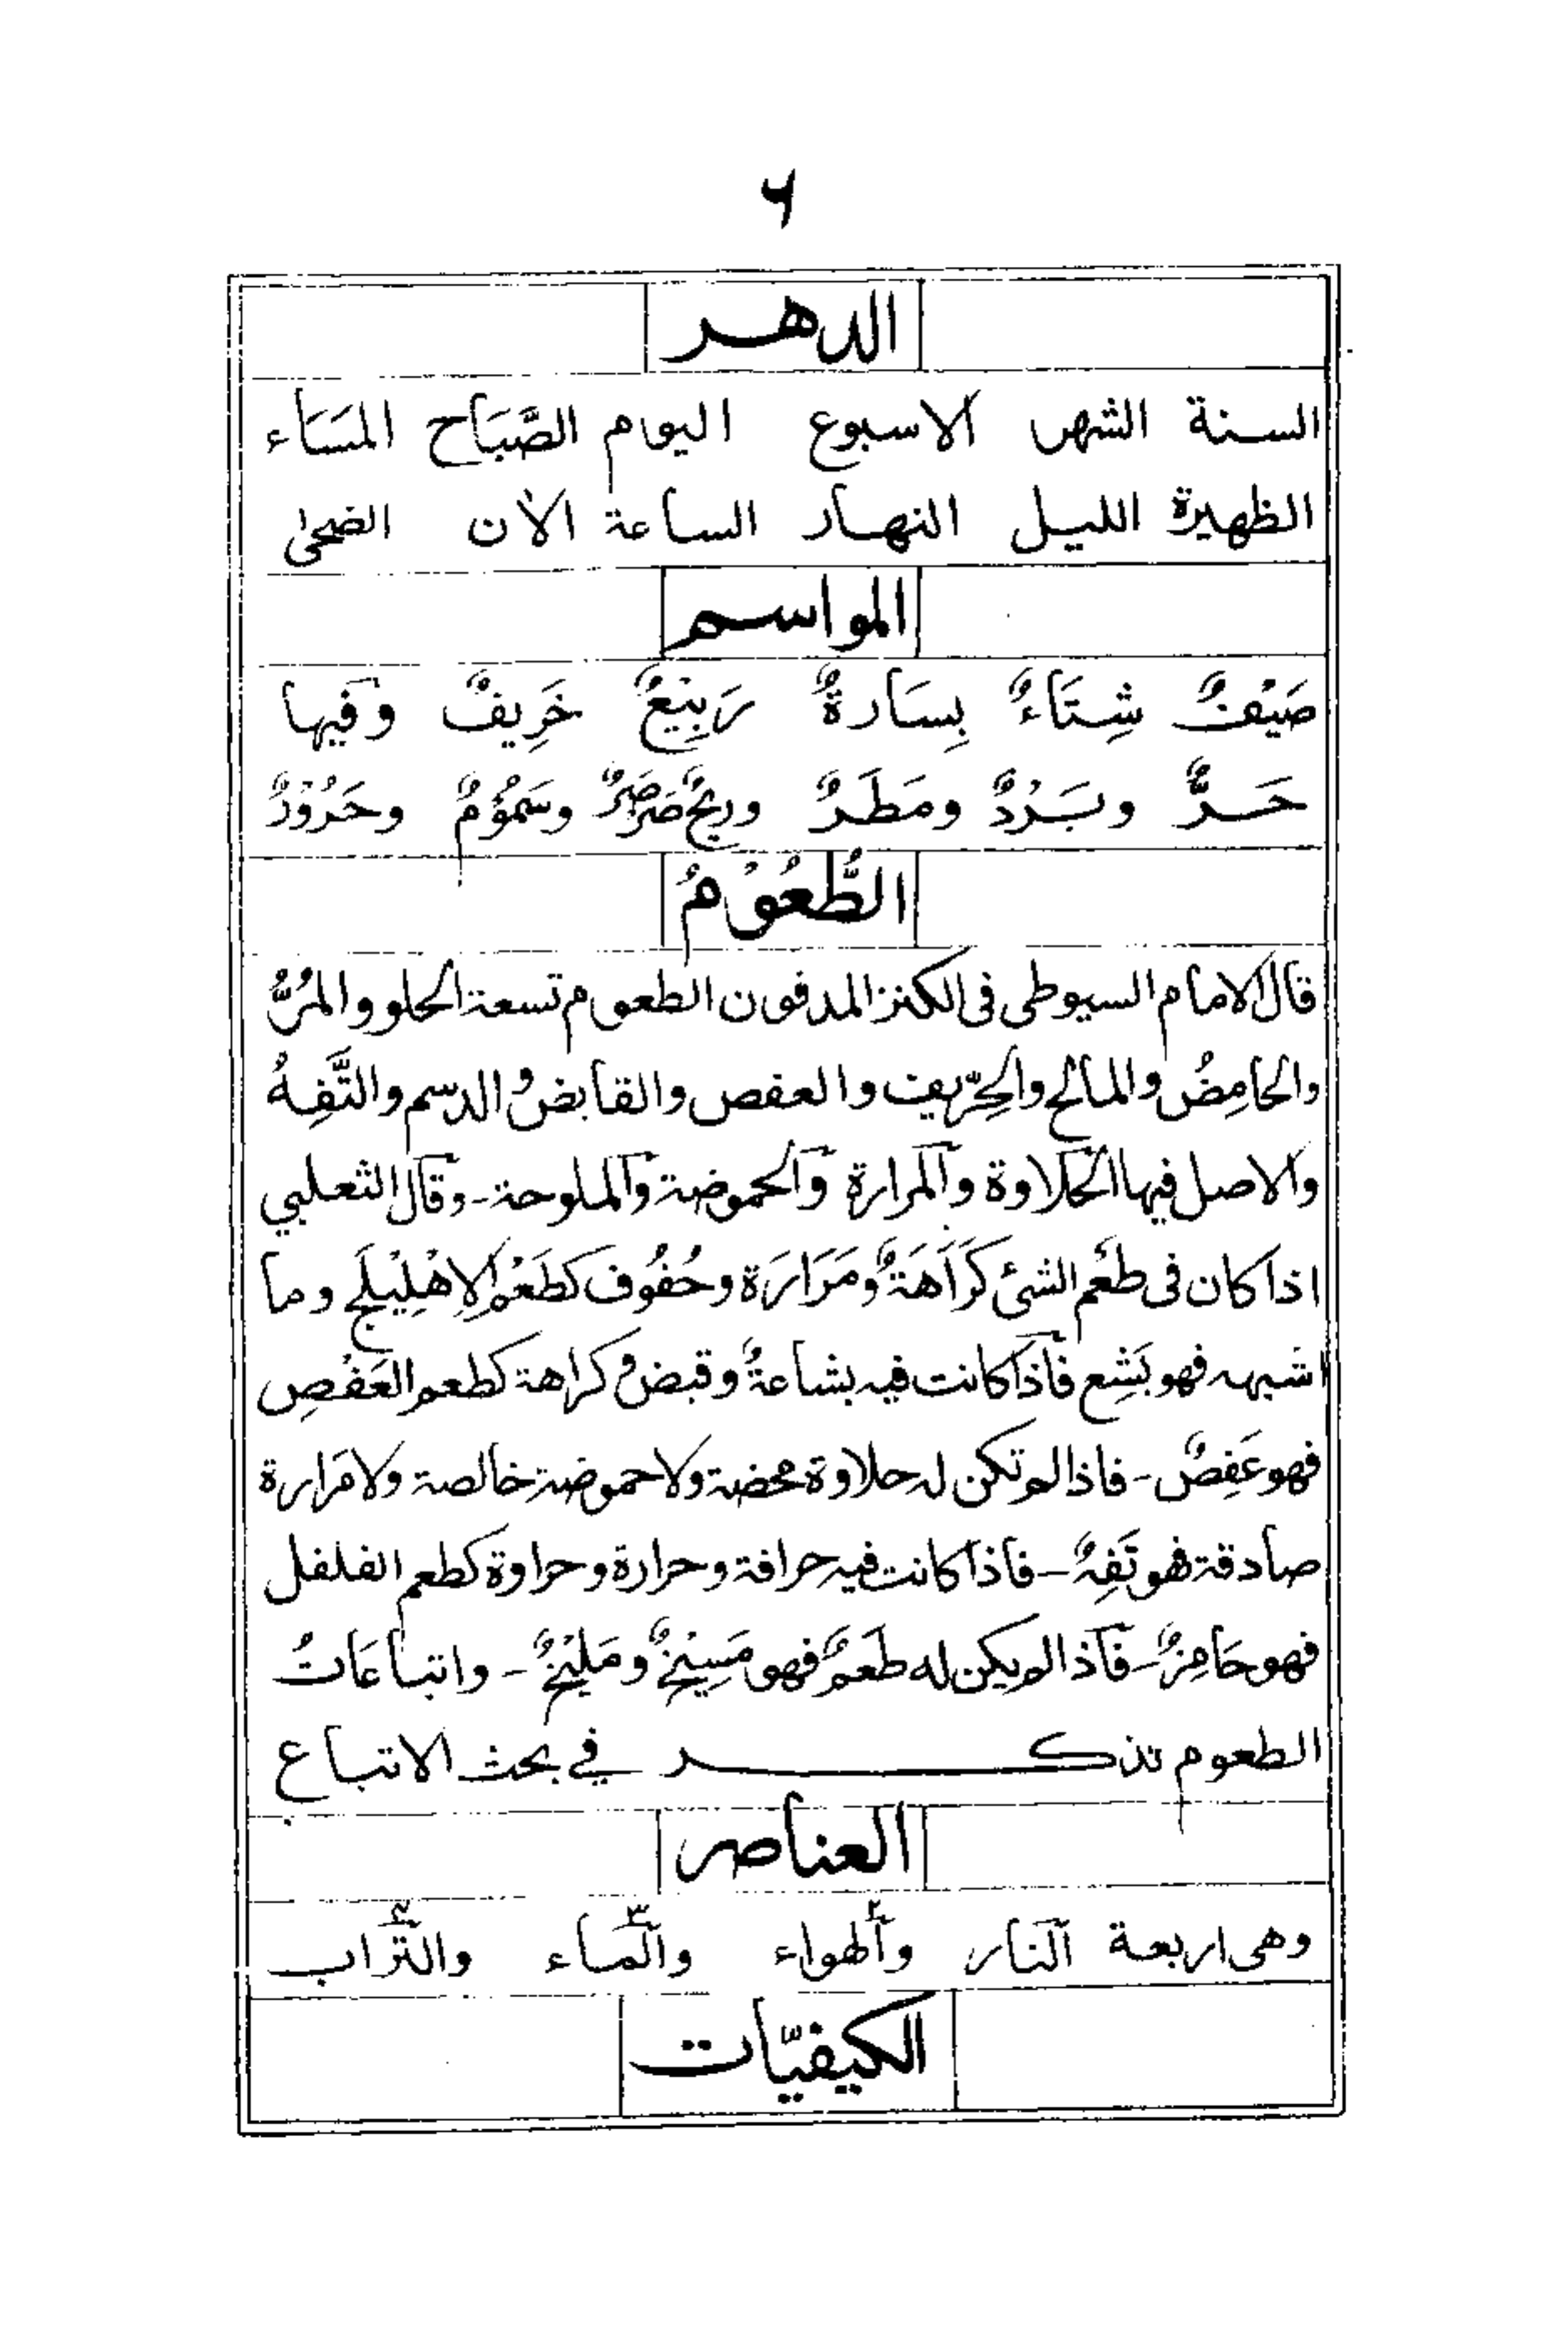 ۶
الدهر
السنة الشهر الاسبوع اليوم الصَّبَاح المَسَاء
الظهيرة الليل النهار الساعة الاٰن الضحىٰ
المواسم
صَيْفٌ شِتَاءٌ بِسَارةٌ رَبِيْعٌ خَرِيفٌ وفيها
حَرٌّ وبَرْدٌ ومَطَرٌ وريحٌ صَرْصَرٌ وسَمُوْمٌ وحَرُوْرٌ
الطُّعُوْمُ
قال الامام السيوطى فى الكنز المدفون الطعوم تسعة الحلو والمُرُّ
والحامِضُ والمالح والحِرّيف والعفص والقابضُ والدسم والتَّفِهُ
والاصل فيها الحلاوة والمرارة والحموضة والملوحة - وقال الثعلبي
اذا كان فى طعم الشئ كَرَاهَةٌ ومَرَارَة وحُفُوف كطَعْم الاِهْلِيْلَج وما
اشبهه فهو بَشِع فاذا كانت فيه بشاعةٌ وقبضٌ وكراهة كطعم العَفْصِ
فهو عَفِصٌ - فاذا لم تكن له حلاوة محضة ولا حموضة خالصة ولا مَرارة
صادقة فهو تَفِهٌ - فاذا كانت فيه حرافة وحرارة وحراوة كطعم الفلفل
فهو حَامِزٌ - فاذا لم يكن له طَعمٌ فهو مَسِيْخٌ ومَلِيْخٌ - واتباعَاتُ
الطعوم تذكر في بحث الاتباع
العناصر
وهى اربعة النار والهواء والماء والتراب
الكيفيّات